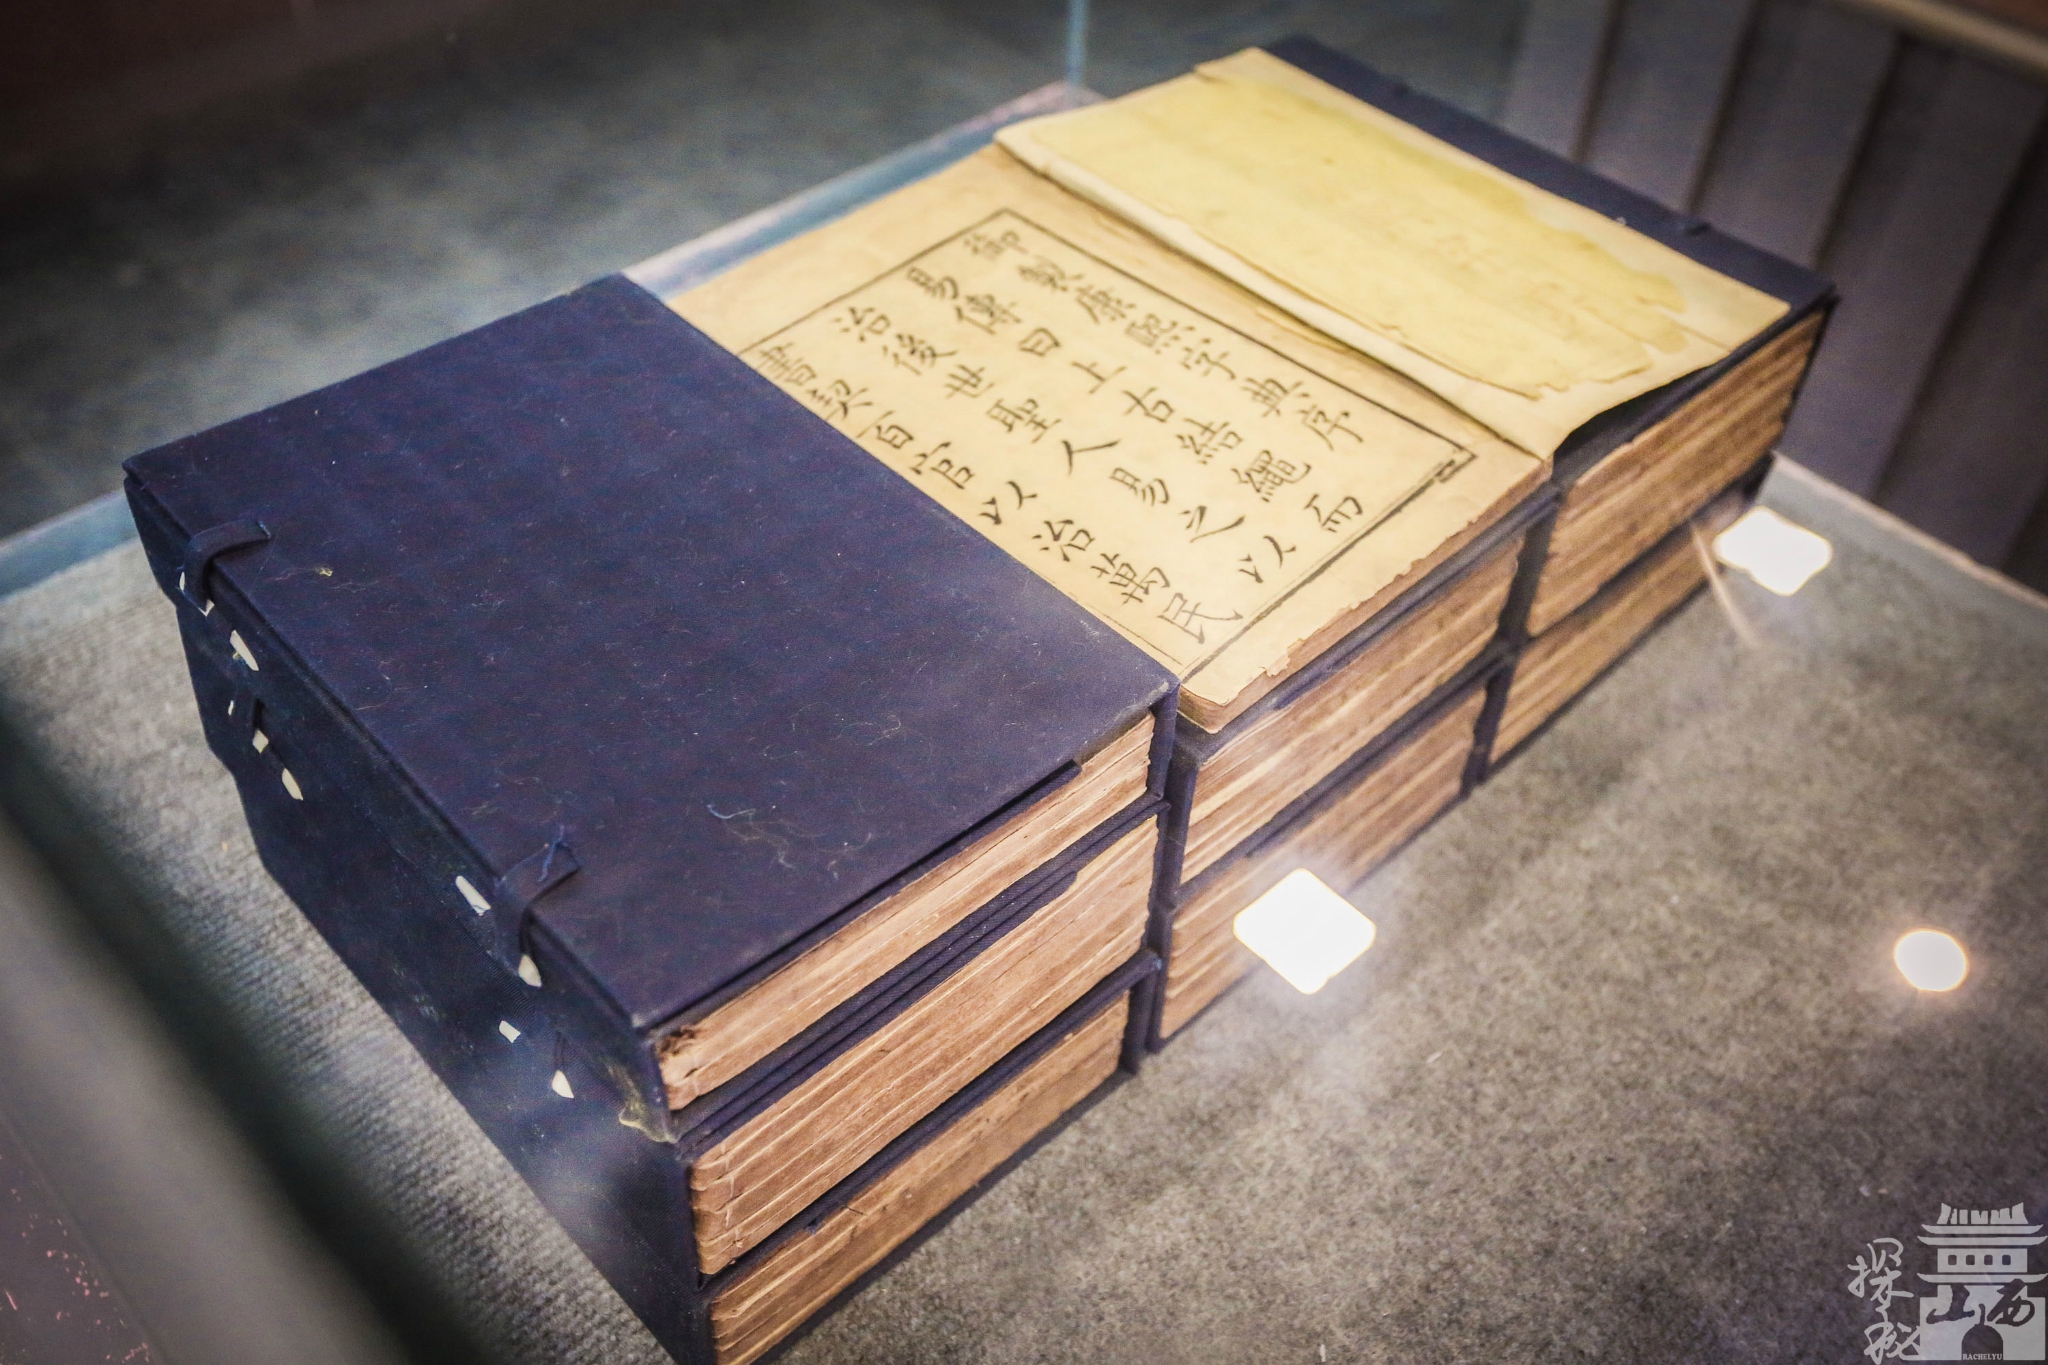 御製康熙字典序
易傳曰上古結繩而
治後世聖人易之以
書契百官以治萬民
探秘
山西
RACHELYU